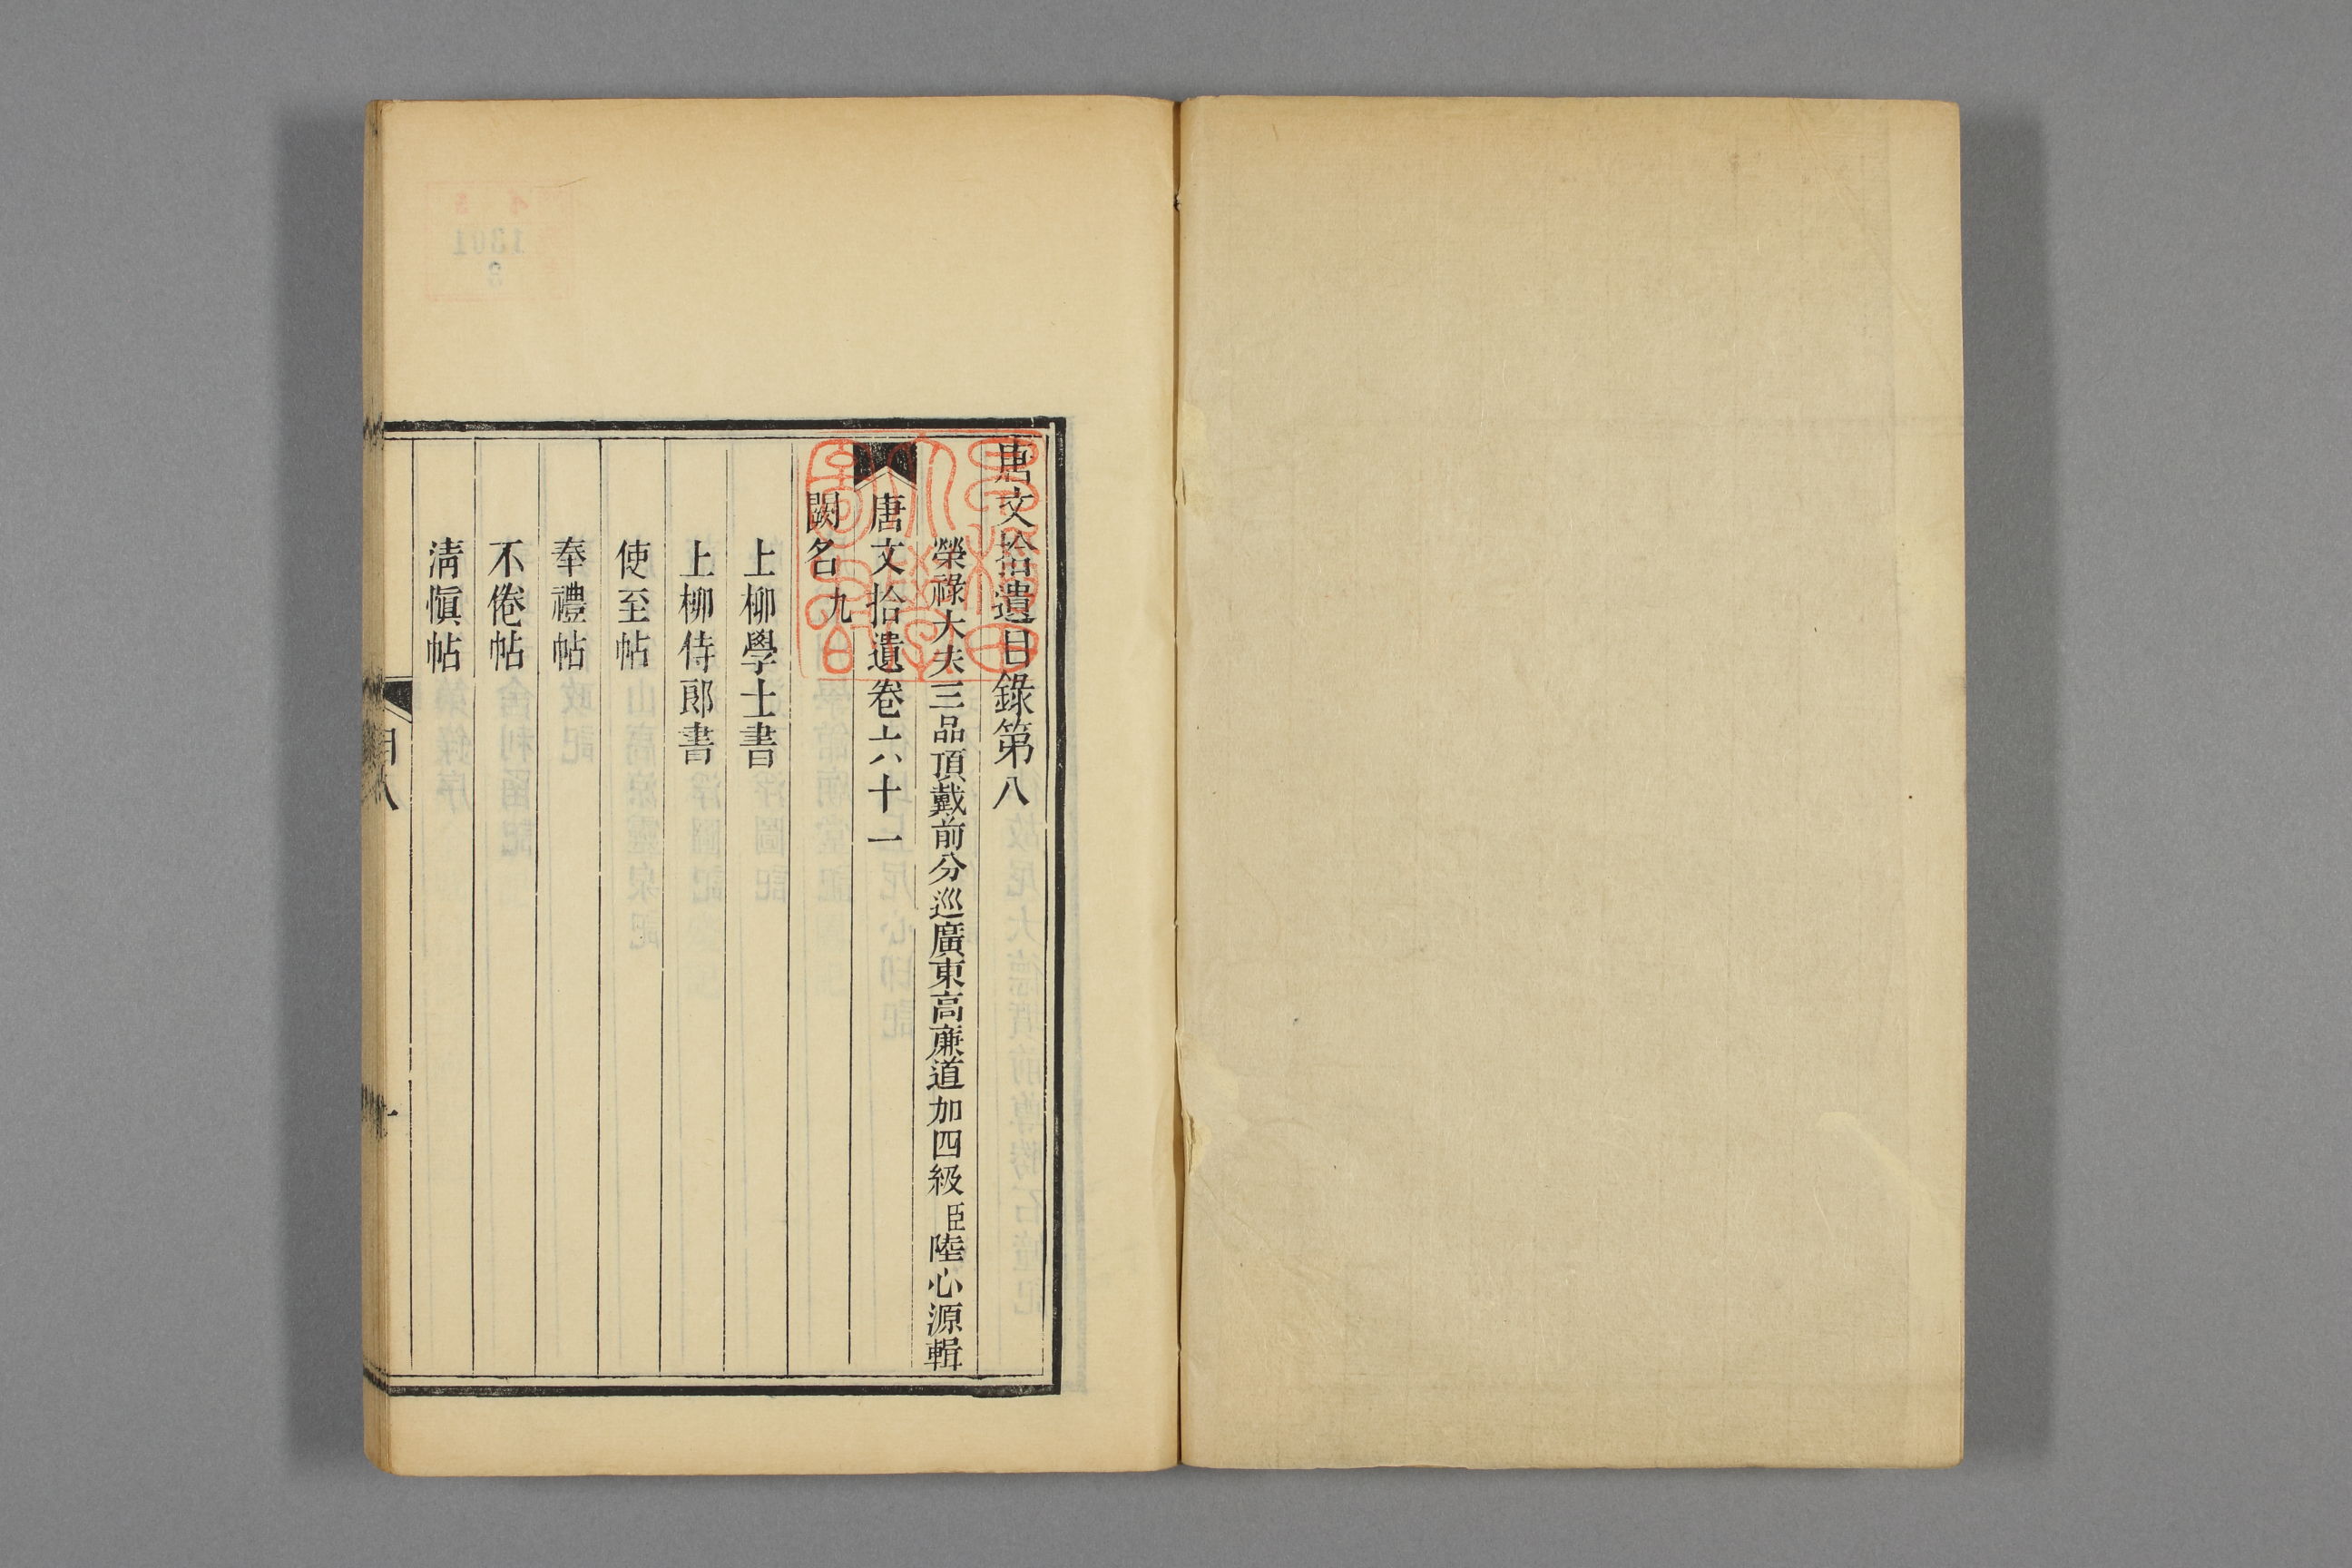 唐文拾遺目錄第八
榮祿大夫三品頂戴前分巡廣東高廉道加四級臣陸心源輯
唐文拾遺卷六十一
闕名九
上柳學士書
上柳侍郎書
使至帖
奉禮帖
不倦帖
淸愼帖
目八
一